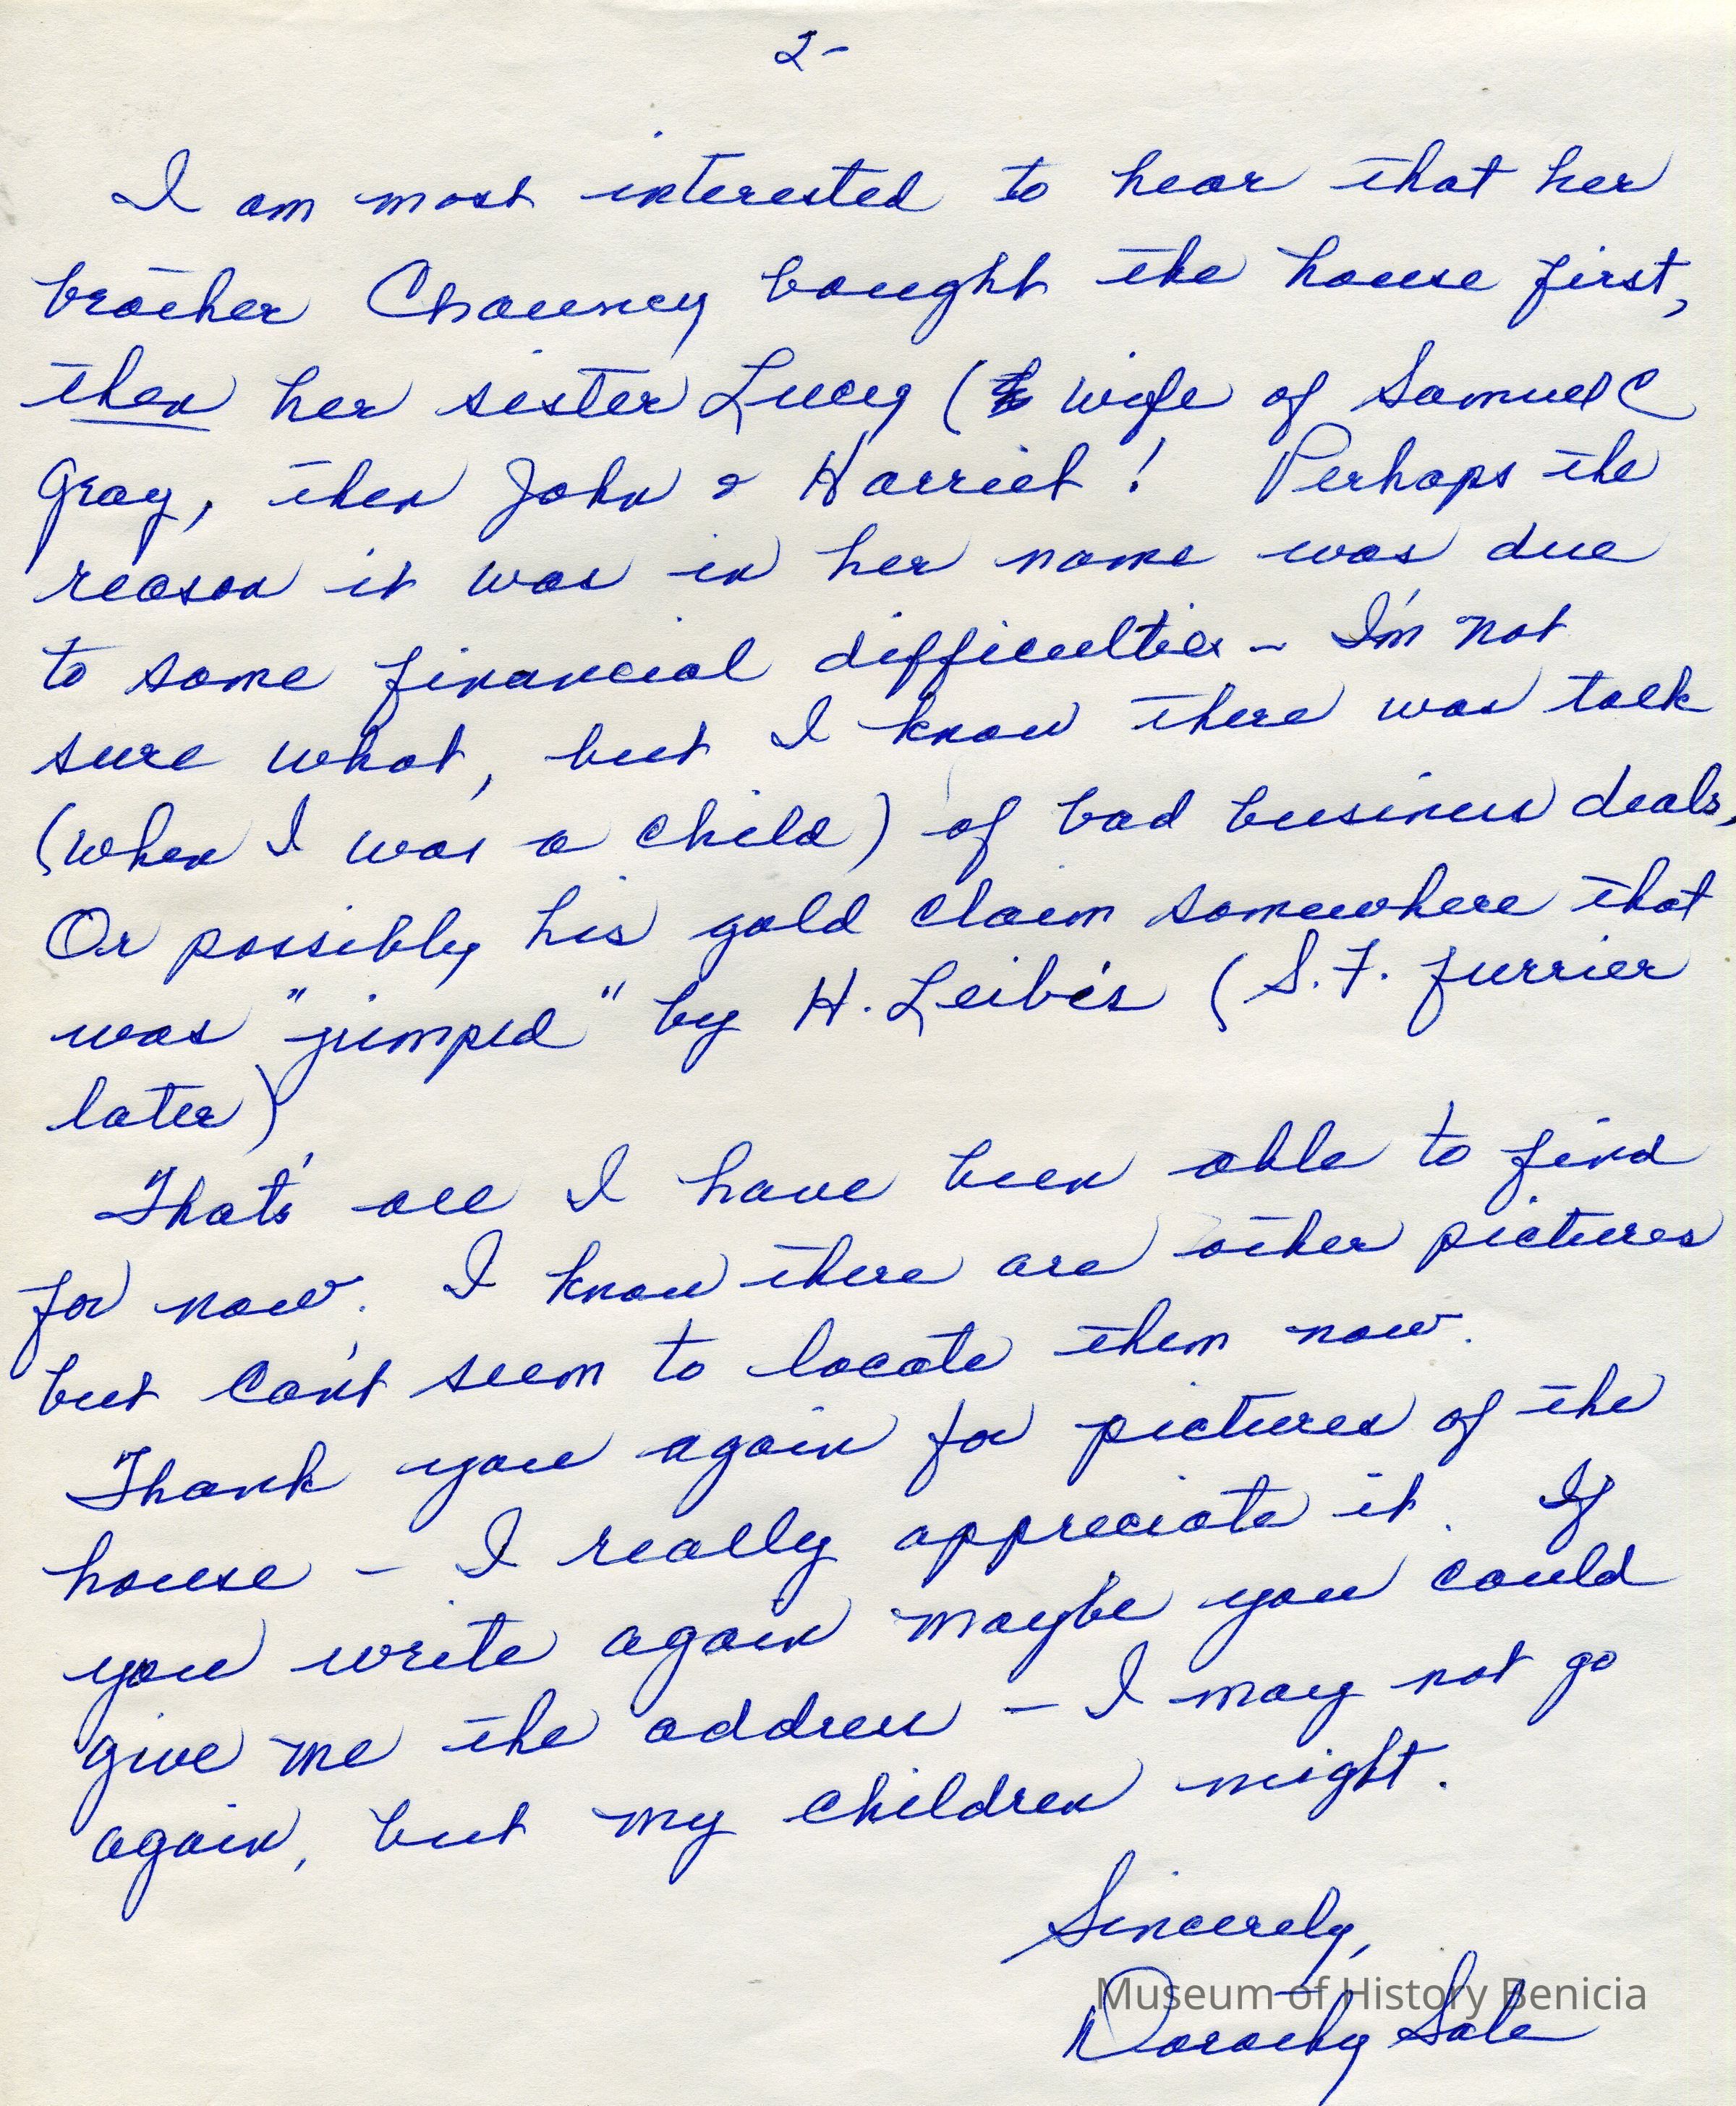 2-
I am most interested to hear that her
brother Chauncy bought the house first,
then her sister Lucy ( wife of Samuel C
Gray, then John & Harriet! Perhaps the
reason it was in her name was due
to some financial difficulties - I'm not
sure what, but I know there was talk
(when I was a child) of bad business deals,
Or possibly his gold claim somewhere that
was "jumped" by H. Leibe's (S.F. furrier
later)
That's all I have been able to find
for now. I know there are other pictures
but can't seem to locate them now.
Thank you again for pictures of the
house - I really appreciate it. If
you write again maybe you could
give me the address - I may not go
again, but my children might.
Sincerely,
Museum of History Benicia
Dorothy Sale